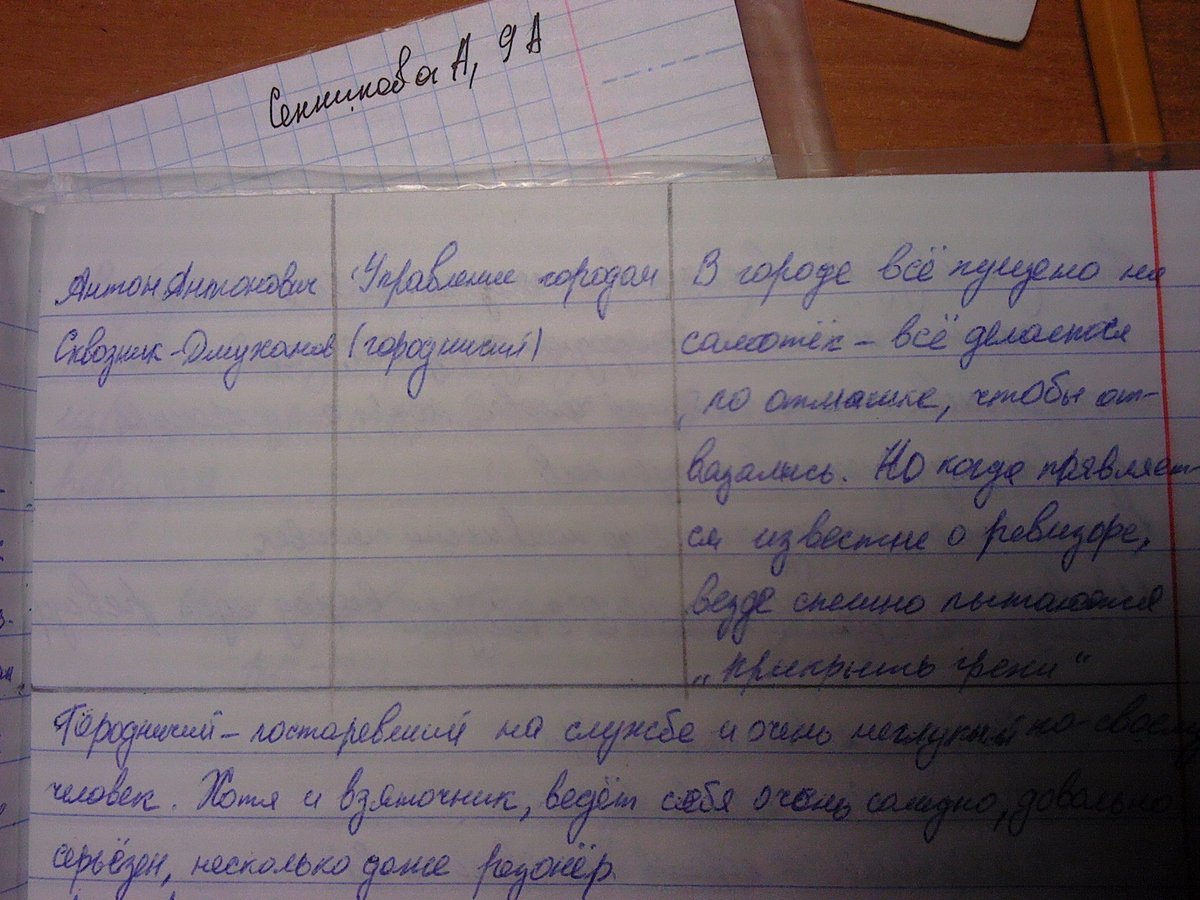 Сенникова А, 9 А
Антон Антонович
Сквозник-Дмухановс
Управление городом
(городничий)
В городе всё пущено на
самотёк – всё делается
по отмашке, чтобы от-
вязались. Но когда прявляет-
ся известие о ревизоре,
везде спешно пытаются
„прикрыть грехи“
Городничий – постаревший на службе и очень неглупый по-своему
человек. Хотя и взяточник, ведёт себя очень солидно, довольно
серьёзен, несколько даже резонёр.